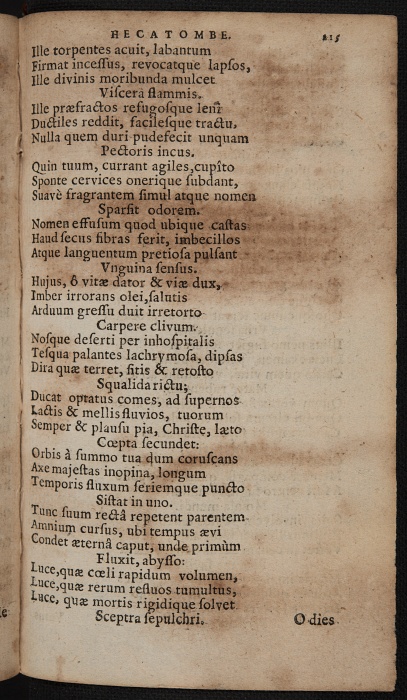 HECATOMBE. 215
Ille torpentes acuit, labantum
Firmat inceſſus, revocatque lapſos,
Ille divinis moribunda mulcet
Viſcera flammis.
Ille præfractos refugoſque leni
Ductiles reddit, facileſque tractu,
Nulla quem duri pudefecit unquam
Pectoris incus.
Quin tuum, currant agiles, cupîto
Sponte cervices onerique ſubdant,
Suavè fragrantem ſimul atque nomen
Sparſit odorem.
Nomen effuſum quod ubique caſtas
Haud ſecus fibras ferit, imbecillos
Atque languentum pretioſa pulſant
Vnguina ſenſus.
Hujus, ô vitæ dator & viæ dux,
Imber irrorans olei, ſalutis
Arduum greſſu duit irretorto
Carpere clivum.
Noſque deſerti per inhoſpitalis
Teſqua palantes lachrymoſa, dipſas
Dira quæ terret, ſitis & retoſto
Squalida rictu;
Ducat optatus comes, ad ſupernos
Lactis & mellis fluvios, tuorum
Semper & plauſu pia, Chriſte, læto
Cœpta ſecundet:
Orbis à ſummo tua dum coruſcans
Axe majeſtas inopina, longum
Temporis fluxum ſeriemque puncto
Siſtat in uno.
Tunc ſuum rectâ repetent parentem
Amnium curſus, ubi tempus ævi
Condet æternâ caput, unde primùm
Fluxit, abyſſo:
Luce, quæ cœli rapidum volumen,
Luce, quæ rerum refluos tumultus,
Luce, quæ mortis rigidique ſolvet
Sceptra ſepulchri. O dies